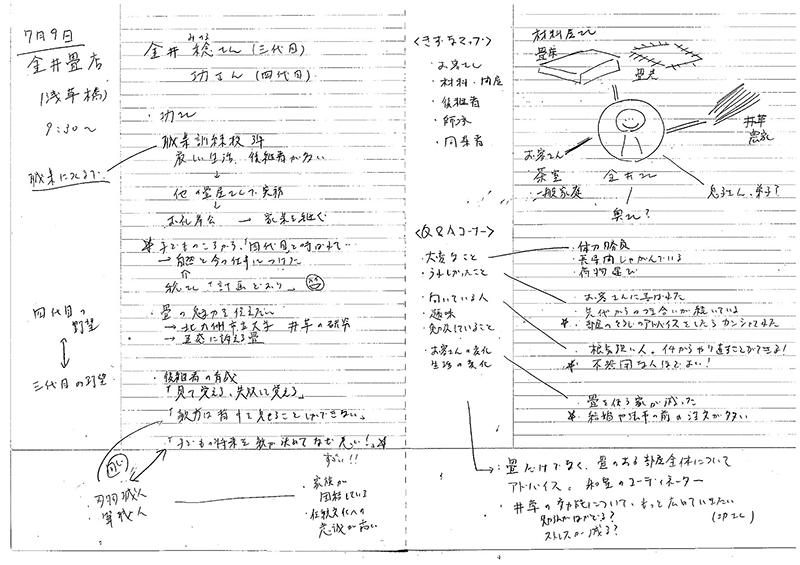 7月9日
金井畳店
(浅草橋)
9:30〜
職業になるまで
四代目の
野望
三代目の野望
金井 稔さん(三代目)
みのる
功さん(四代目)
・功さん
職業訓練校 3年
厳しい生活、後継者が多い
↓
他の畳屋さんで実務
↓
お礼奉公 → 家業を継ぐ
*子どものころから、「四代目」と呼ばれて…
→自然と今の仕事につけた
稔さん「計画どおり」
・畳の魅力を伝えたい
→北九州市立大学 井草の研究
→五感に訴える畳
・後継者の育成
「見て覚える、失敗して覚える」
「教育は背中で見せることしかできない。」
「子どもの将来を親が決めてなぜ悪い!」*
同じ
・家族が
団結している
・伝統文化への
意識が高い
すごい!!
<きずなマップ>
・お客さん
・材料・問屋
・後継者
・師承
・同業者
材料屋さん
畳床
畳表
井草
農家
お客さん
茶室
一般家庭
金井さん
息子さん、弟子?
奥さん?
<Q&Aコーナー>
・大変なこと
・うれしかったこと
・向いている人
・趣味
・勉強していること
・お客さんの変化
生活の変化
・体力勝負
・長時間しゃがんでいる
・荷物運び
・お客さんに喜ばれた
・先代からの付き合いが続いている
*部屋のそうじのアドバイスをしたらカンシャされた
・根気強い人。何からやり直すことができる!
*不器用な人ほどよい!
・畳を使う家が減った
*結婚や法事の前の注文が多い
・畳だけでなく、畳のある部屋全体について
アドバイス。和室のコーディネーター
・井草の効能について、もっと広めていきたい
勉強がはかどる?
ストレスが減る?
(功さん)